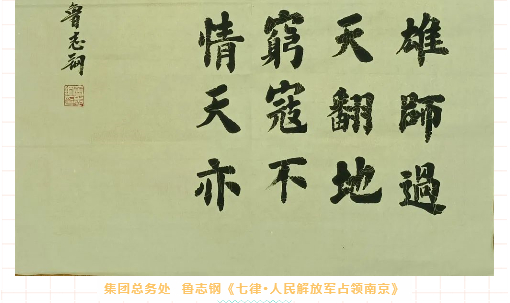 雄師過
天翻地
窮寇不
情天亦
魯志
集团总务处 鲁志钢《七律·人民解放军占领南京》